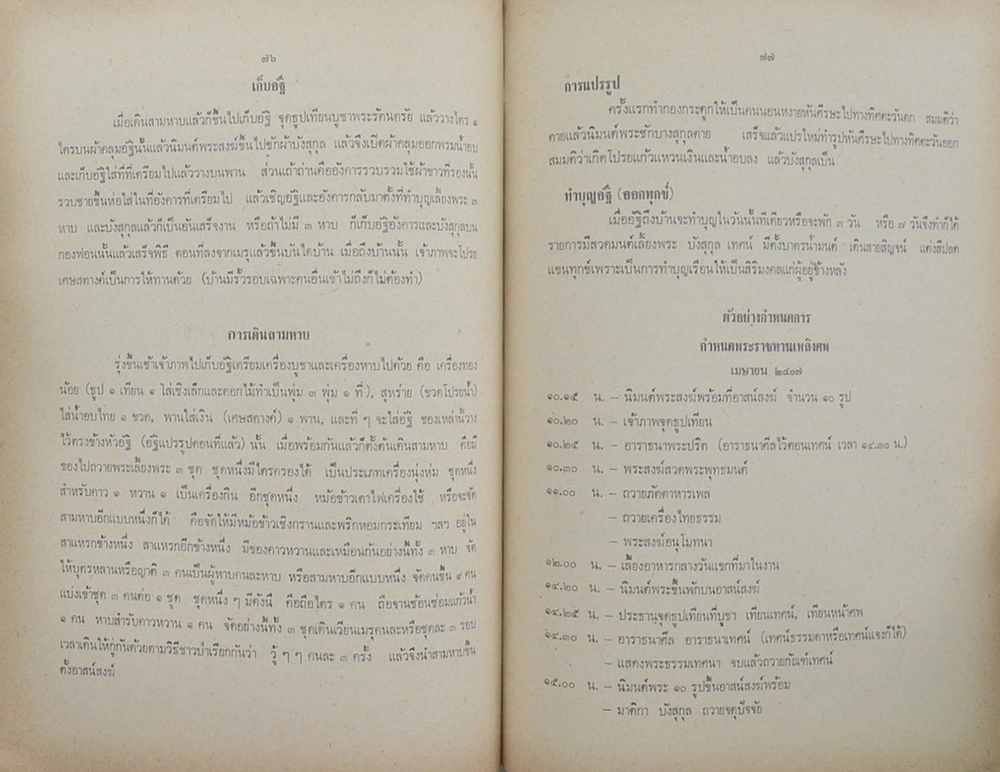 ๗๖
เก็บอัฐิ
เมื่อเดินสามหาบแล้วก็ขึ้นไปเก็บอัฐิ จุดธูปเทียนบูชาพระรัตนตรัย แล้ววางไตร ๑
ไตรบนผ้าคลุมอัฐินั้นแล้วนิมนต์พระสงฆ์ขึ้นไปชักผ้าบังสุกุล แล้วจึงเปิดผ้าคลุมออกพรมน้ำอบ
และเก็บอัฐิใส่ที่ที่เตรียมไปแล้ววางบนพาน ส่วนเถ้าถ่านคืออังคารรวบรวมใช้ผ้าขาวที่รองนั้น
รวบชายขึ้นห่อใส่ในที่อังคารที่เตรียมไป แล้วเชิญอัฐิและอังคารกลับมาตั้งที่ทำบุญเลี้ยงพระ ๓
หาบ และบังสุกุลแล้วก็เป็นอันเสร็จงาน หรือถ้าไม่มี ๓ หาบ ก็เก็บอัฐิอังคารและบังสุกุลบน
กองฟอนนั้นแล้วเสร็จพิธี ตอนที่ลงจากเมรุแล้วขึ้นบันไดบ้าน เมื่อถึงบ้านนั้น เจ้าภาพจะโปรย
เศษสตางค์เป็นการให้ทานด้วย (บ้านมีรั้วรอบเฉพาะคนอื่นเข้าไม่ถึงก็ไม่ต้องทำ)
การเดินสามหาบ
รุ่งขึ้นเช้าเจ้าภาพไปเก็บอัฐิเตรียมเครื่องบูชาและเครื่องหาบไปด้วย คือ เครื่องทอง
น้อย (ธูป ๑ เทียน ๑ ใส่เชิงเล็กและดอกไม้ทำเป็นพุ่ม ๓ พุ่ม ๑ ที่), สุหร่าย (ขวดโปรยน้ำ)
ใส่น้ำอบไทย ๑ ขวด, พานใส่เงิน (เศษสตางค์) ๑ พาน, และที่ ๆ จะใส่อัฐิ ของเหล่านี้วาง
ไว้ตรงข้างหัวอัฐิ (อัฐิแปรรูปตอนที่แล้ว) นั้น เมื่อพร้อมกันแล้วก็ตั้งต้นเดินสามหาบ คือมี
ของไปถวายพระเลี้ยงพระ ๓ ชุด ชุดหนึ่งมีไตรครองได้ เป็นประเภทเครื่องนุ่งห่ม ชุดหนึ่ง
สำหรับคาว ๑ หวาน ๑ เป็นเครื่องกิน อีกชุดหนึ่ง หม้อข้าวเตาไฟเครื่องใช้ หรือจะจัด
สามหาบอีกแบบหนึ่งก็ได้ คือจัดให้มีหม้อข้าวเชิงกรานและพริกหอมกระเทียม ฯลฯ อยู่ใน
สาแหรกข้างหนึ่ง สาแหรกอีกข้างหนึ่ง มีของคาวหวานและเหมือนกันอย่างนี้ทั้ง ๓ หาบ จัด
ให้บุตรหลานหรือญาติ ๓ คนเป็นผู้หาบคนละหาบ หรือสามหาบอีกแบบหนึ่ง จัดคนขึ้น ๙ คน
แบ่งเข้าชุด ๓ คนต่อ ๑ ชุด ชุดหนึ่ง ๆ มีดังนี้ คือถือไตร ๑ คน ถือจานช้อนซ่อมแก้วน้ำ
๑ คน หาบสำรับคาวหวาน ๑ คน จัดอย่างนี้ทั้ง ๓ ชุดเดินเวียนเมรุคนละหรือชุดละ ๓ รอบ
เวลาเดินให้กู่กันด้วยตามวิธีชาวป่าเรียกกันว่า วู้ ๆ ๆ คนละ ๓ ครั้ง แล้วจึงนำสามหาบขึ้น
ตั้งอาสน์สงฆ์
๗๗
การแปรรูป
ครั้งแรกทำกองกระดูกให้เป็นคนนอนหงายหันศีรษะไปทางทิศตะวันตก สมมติว่า
ตายแล้วนิมนต์พระชักบางสุกุลตาย เสร็จแล้วแปรใหม่ทำรูปหันศีรษะไปทางทิศตะวันออก
สมมติว่าเกิดโปรยแก้วแหวนเงินและน้ำอบลง แล้วบังสุกุลเป็น
ทำบุญอัฐิ (ออกทุกข์)
เมื่ออัฐิถึงบ้านจะทำบุญในวันนั้นทีเดียวหรือจะพัก ๓ วัน หรือ ๗ วันจึงทำก็ได้
รายการมีสวดมนต์เลี้ยงพระ บังสุกุล เทศน์ มีตั้งบาตรน้ำมนต์ เดินสายสิญจน์ แต่งสีปลด
แขนทุกข์เพราะเป็นการทำบุญเรือนให้เป็นสิริมงคลแก่ผู้อยู่ข้างหลัง
ตัวอย่างกำหนดการ
กำหนดพระราชทานเพลิงศพ
เมษายน ๒๔๐๗
๑๐.๑๕ น. – นิมนต์พระสงฆ์พร้อมที่อาสน์สงฆ์ จำนวน ๑๐ รูป
๑๐.๒๐ น. – เจ้าภาพจุดธูปเทียน
๑๐.๒๕ น. – อาราธนาพระปริต (อาราธนาศีลไว้ตอนเทศน์ เวลา ๑๔.๓๐ น.)
๑๐.๓๐ น. – พระสงฆ์สวดพระพุทธมนต์
๑๑.๐๐ น. – ถวายภัตตาหารเพล
– ถวายเครื่องไทยธรรม
– พระสงฆ์อนุโมทนา
๑๒.๐๐ น. – เลี้ยงอาหารกลางวันแขกที่มาในงาน
๑๔.๒๐ น. – นิมนต์พระขึ้นพักบนอาสน์สงฆ์
๑๔.๒๕ น. – ประธานจุดธูปเทียนที่บูชา เทียนเทศน์, เทียนหน้าศพ
๑๔.๓๐ น. – อาราธนาศีล อาราธนาเทศน์ (เทศน์ธรรมดาหรือเทศน์แจงก็ได้)
– แสดงพระธรรมเทศนา จบแล้วถวายกัณฑ์เทศน์
๑๕.๐๐ น. – นิมนต์พระ ๑๐ รูปขึ้นอาสน์สงฆ์พร้อม
– มาติกา บังสุกุล ถวายจตุปัจจัย